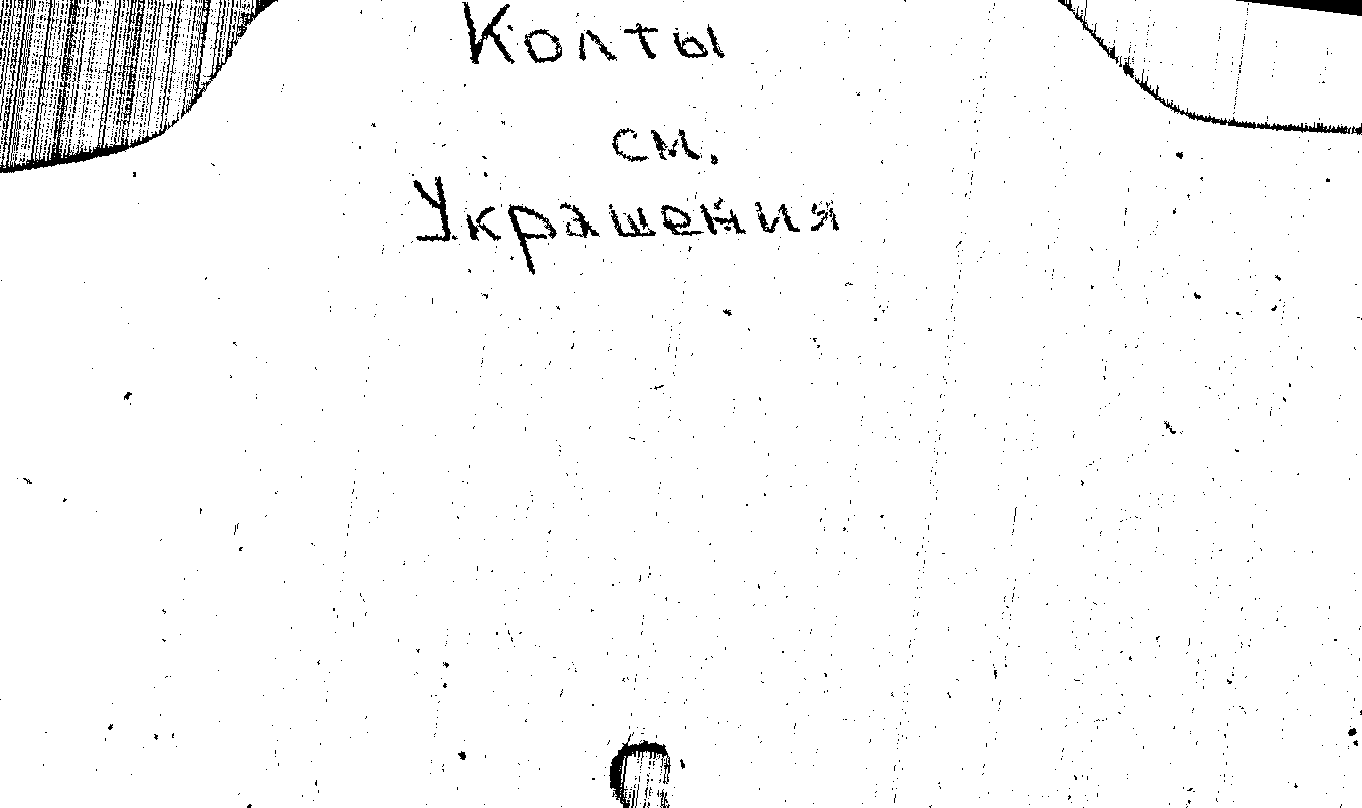 Колты
см.
Украшения